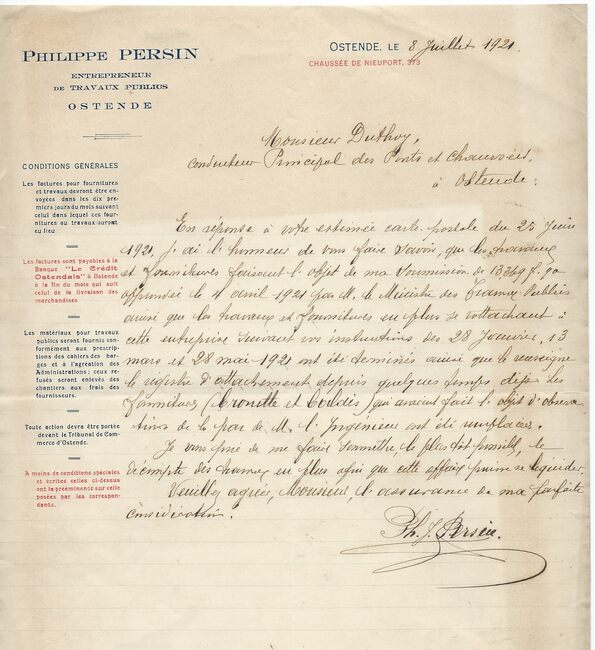 PHILIPPE PERSIN
ENTREPRENEUR
DE TRAVAUX PUBLICS
OSTENDE
OSTENDE, LE 8 Juillet 1921.
CHAUSSÉE DE NIEUPORT, 373
Monsieur Duthoy,
Conducteur Principal des Ponts et Chaussées,
à Ostende.
CONDITIONS GÉNÉRALES
Les factures pour fournitures
et travaux devront être en-
voyées dans les dix pre-
miers jours du mois suivant
celui dans lequel ces four-
nitures ou travaux auront
eu lieu
Les factures sont payables à la
Banque "Le Crédit
Ostendais" à Ostende
à la fin du mois qui suit
celui de la livraison des
marchandises
Les matériaux pour travaux
publics seront fournis con-
formément aux prescrip-
tions des cahiers des har-
ges et à l'agréation des
Administrations; ceux re-
fusés seront enlevés des
chantiers aux frais des
fournisseurs.
Toute action devra être portée
devant le Tribunal de Com-
merce d'Ostende.
A moins de conditions spéciales
et écrites celles ci-dessus
ont la prééminence sur celle
posées par les correspon-
dants.
En réponse à votre estimée carte postale du 25 Juin
1921, j'ai l'honneur de vous faire savoir, que les travaux
et fournitures faisant l'objet de ma soumission de 13369 f. 90
approuvée le 4 avril 1921 par M. le Ministre des Travaux Publics
ainsi que les travaux et fournitures en plus se rattachant à
cette entreprise suivant vos instructions des 28 Janvier, 13
mars et 28 mai 1921 ont été terminés ainsi que le renseigne
le registre d'attachement depuis quelques temps déjà les
fournitures ( et ) qui avaient fait l'objet d'observa
tions de la part de M. l'Ingénieur ont été remplacés.
Je vous prie de me faire soumettre le plus tôt possible, le
décompte des travaux en plus afin que cette affaire puisse se liquider.
Veuillez agréer, Monsieur l'assurance de ma parfaite
considération.
Ph. J. Persin.